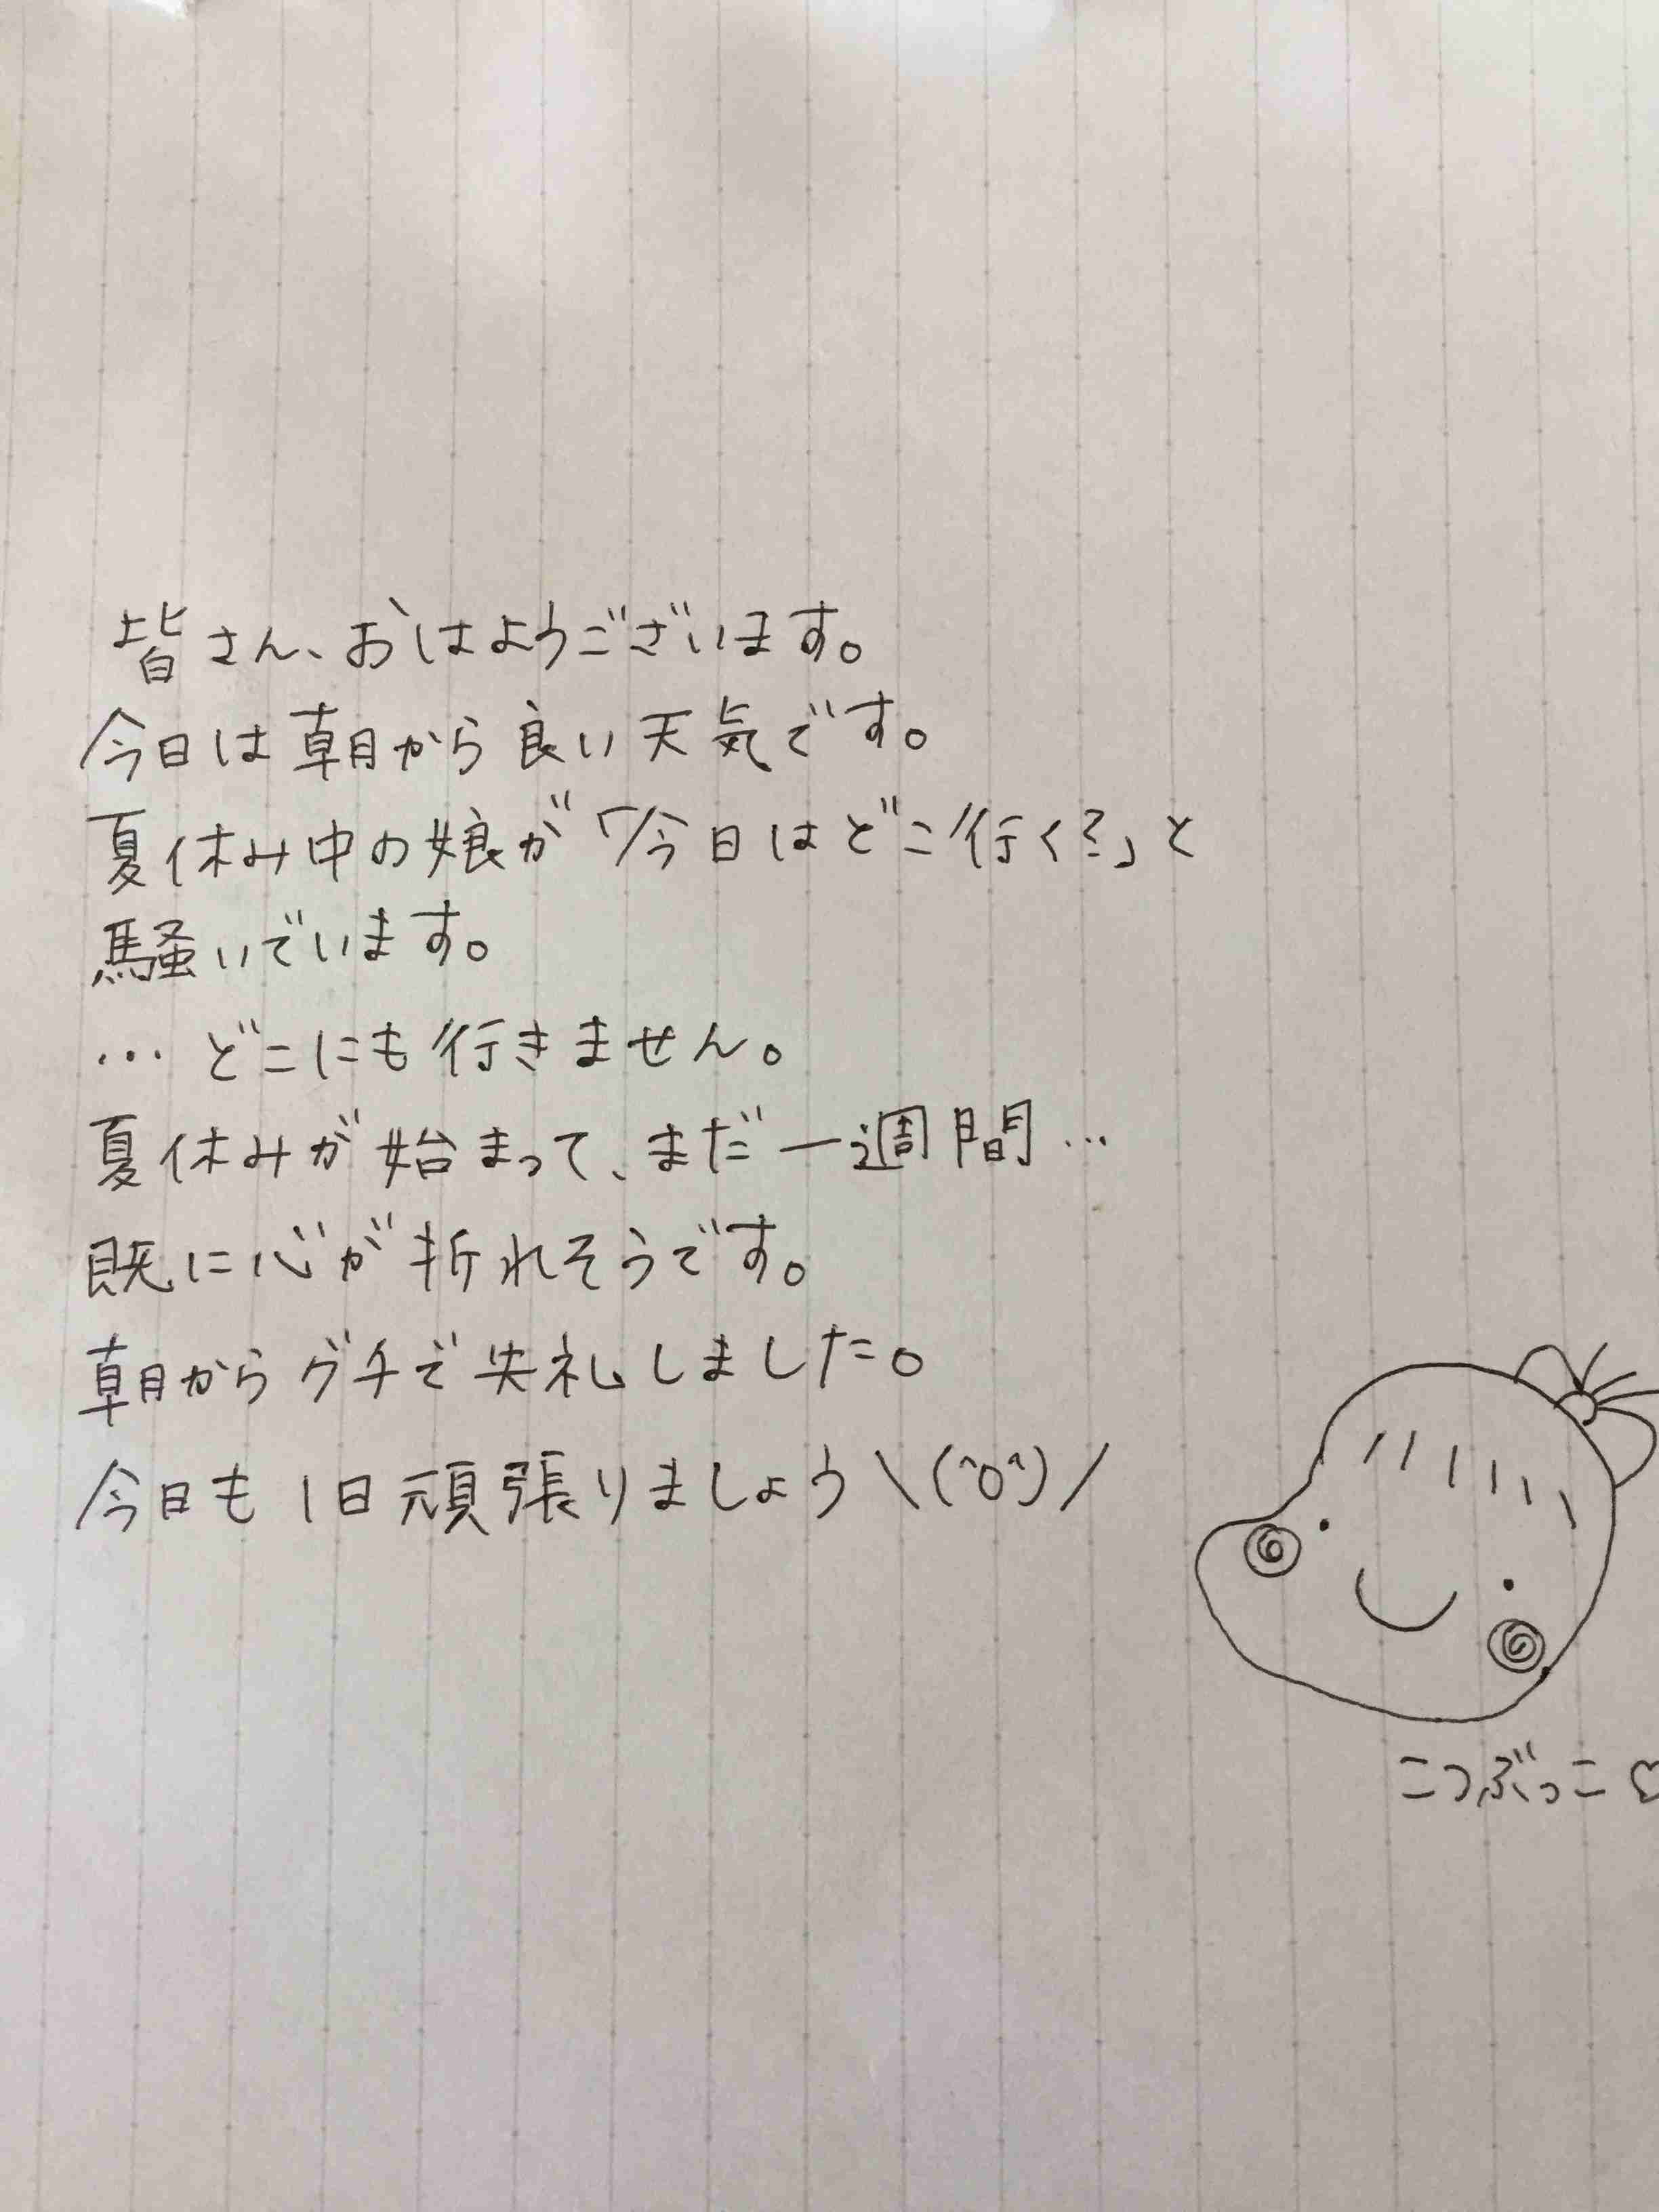 皆さん、おはようございます。
今日は朝から良い天気です。
夏休み中の娘が「今日はどこ行く?」と
騒いでいます。
… どこにも行きません。
夏休みが始まって、まだ一週間…
既に心が折れそうです。
朝からグチで失礼しました。
今日も1日頑張りましょう\(^o^)/
こつぶっこ♡